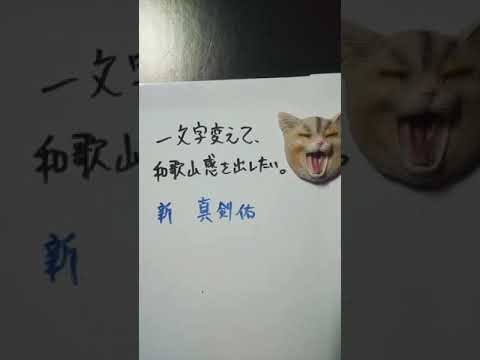 一文字変えて、
和歌山感を出したい。
新 真剣佑
新